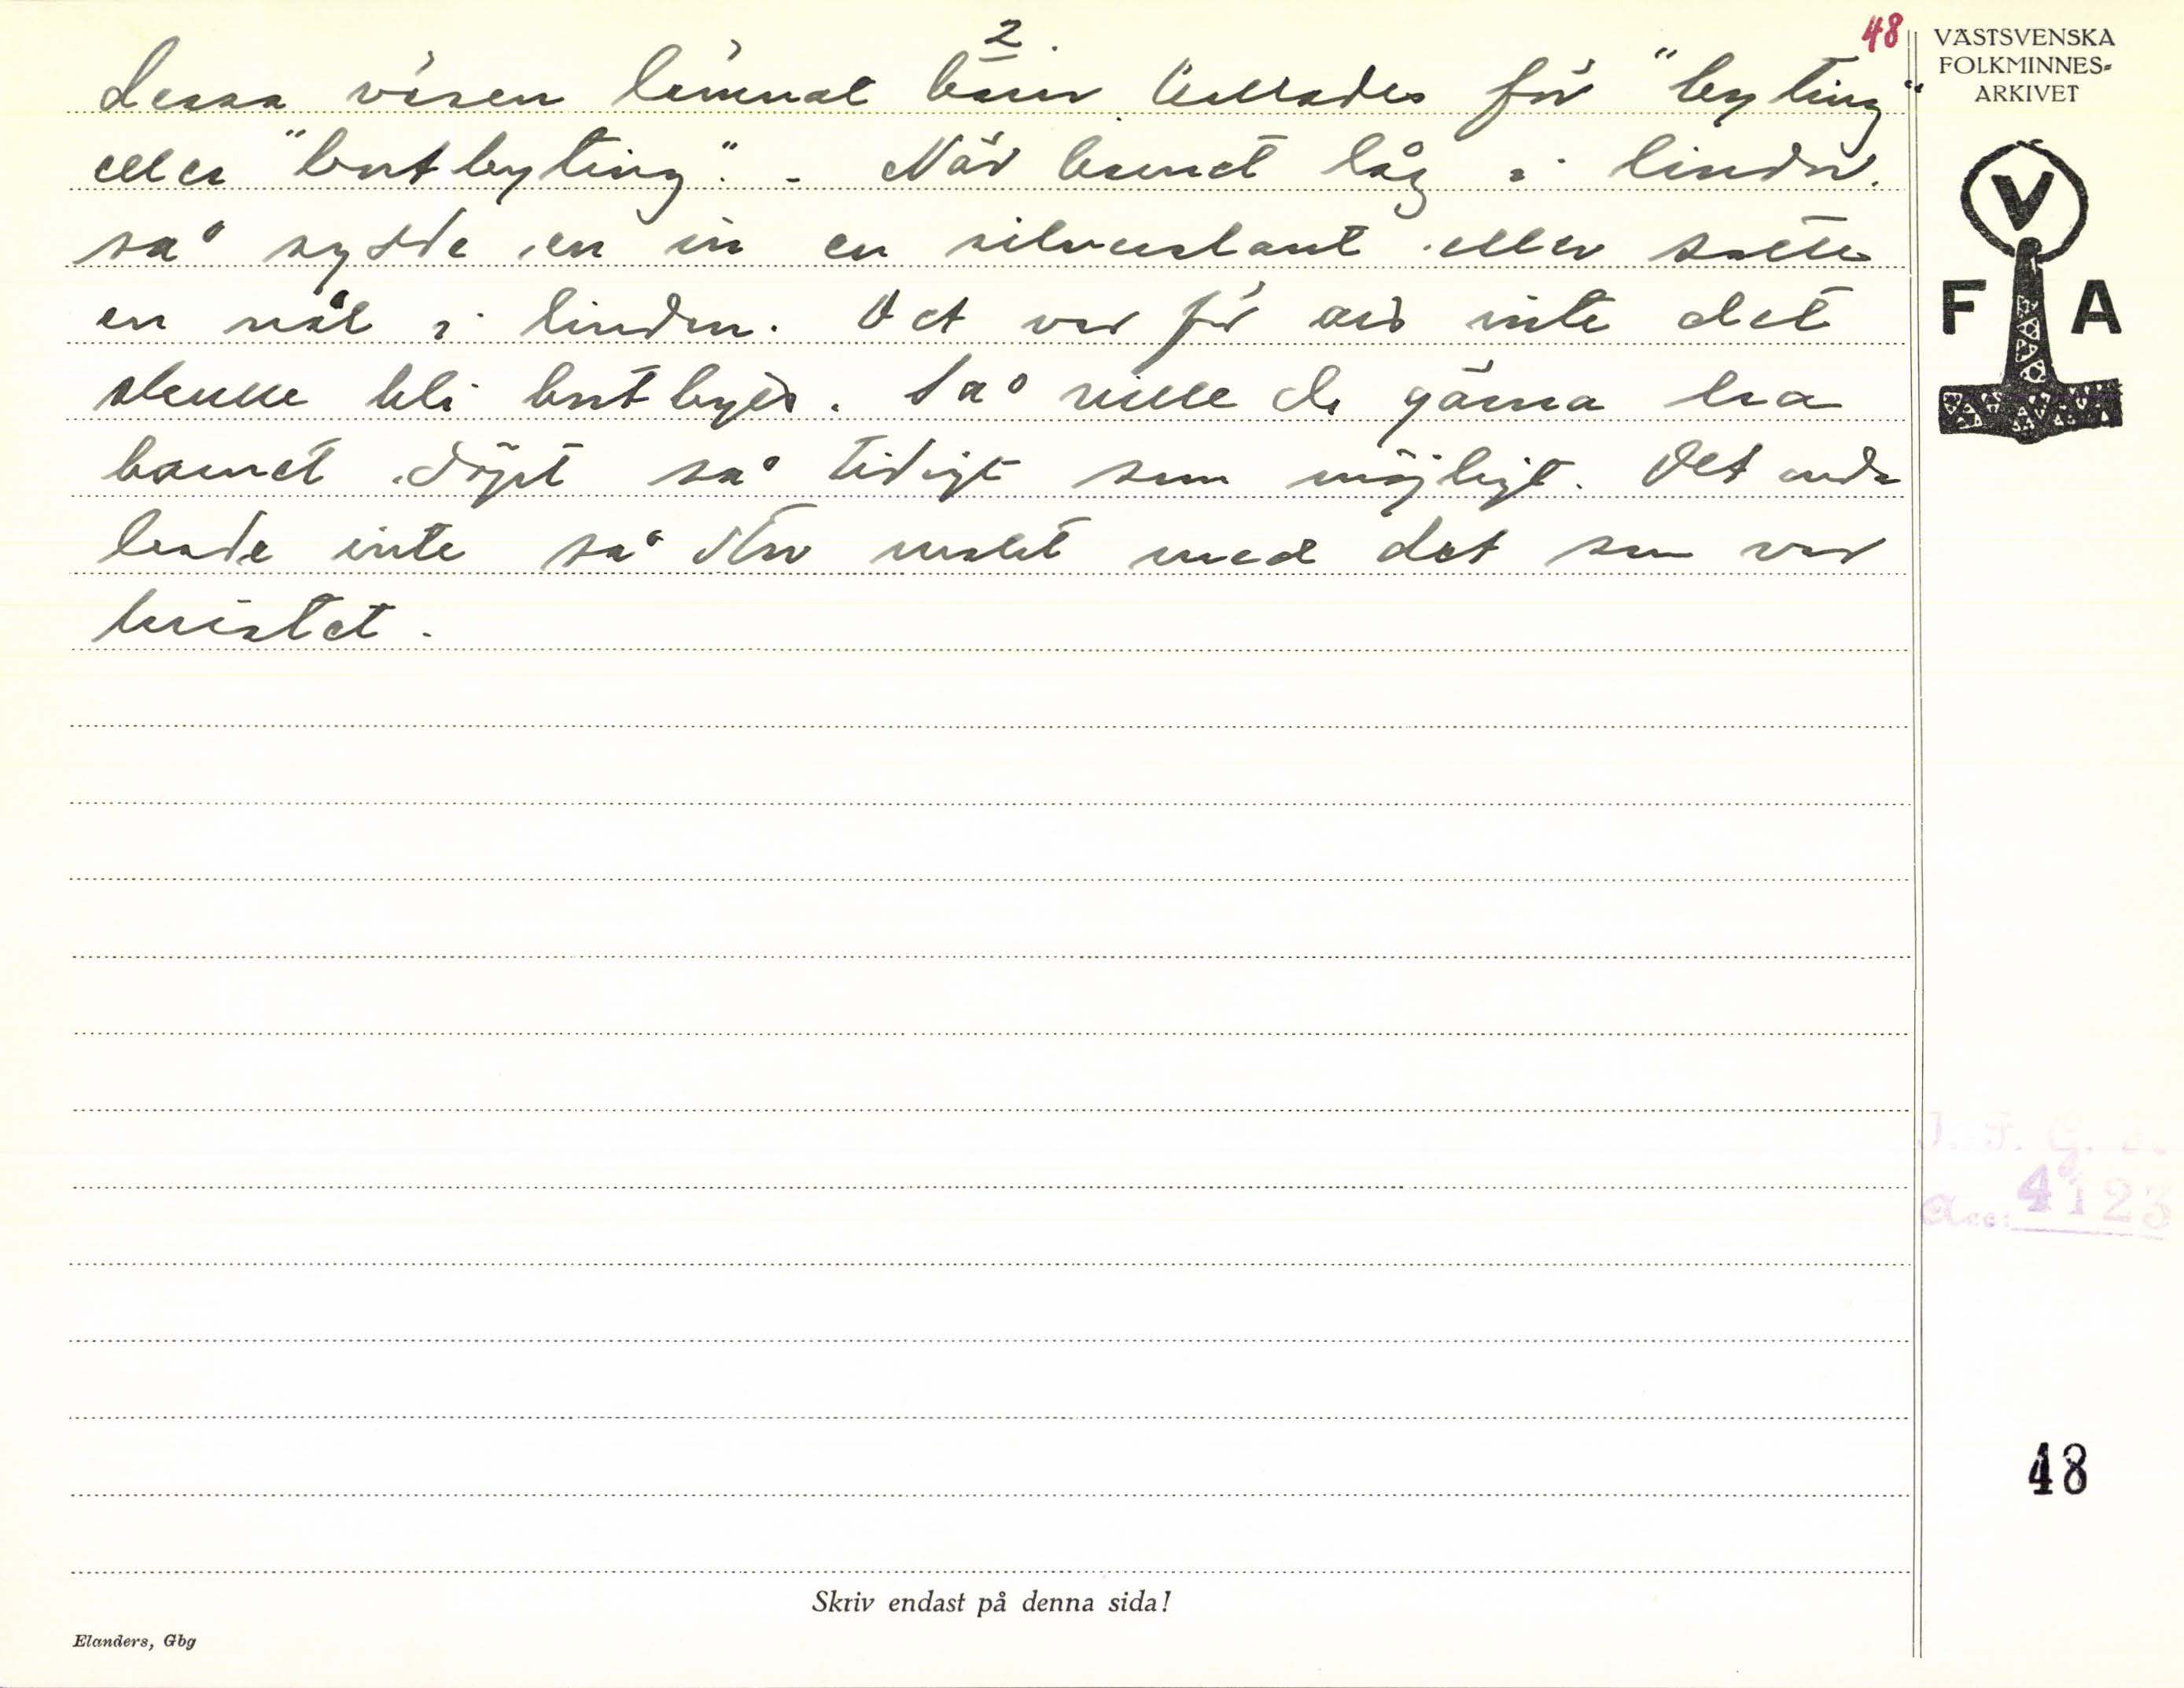 2
48
dessa väsen lämnat barn kallades för "byting"
eller "bortbyting". - När barnet låg i lindor.
så sydde en in en silverslant eller satte
en nål i lindan. Det var för att inte det
skulle bli bortbytt. Så ville de gärna ha
barnet döpt så tidigt som möjligt. Det
inte så stor makt med det som var
kristet.
VÄSTSVENSKA
FOLKMINNES-
ARKIVET
V
F A
Acc: 4123
48
Skriv endast på denna sida!
Elanders, Gbg